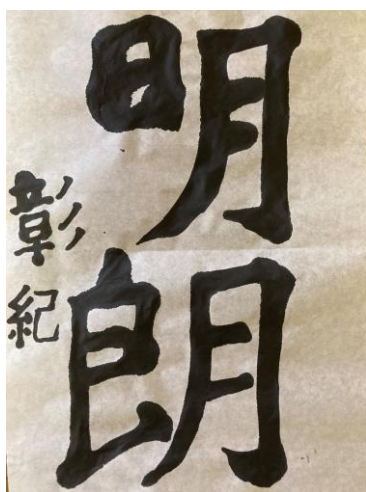 明朗
彰紀